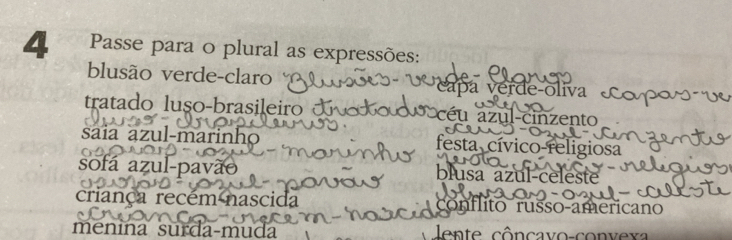 4 Passe para o plural as expressões:
blusão verde-claro Blusões-verde-Claros
capa verde-oliva capas-ve
oliva
tratado luso-brasileiro tratados
céu azul-cinzento
luso-brasileiros.
céus-azul-cinzento
saia azul-marinho
festa cívico-religiosa
azul-marinho
festa cívico-religios
sofá azul-pavão
blusa azul-celeste
azul-pavão
blusas-azul-celeste
criança recém-nascida
conflito russo-americano
criança-recem-nascido
menina surda-muda
lente côncavo-convexa